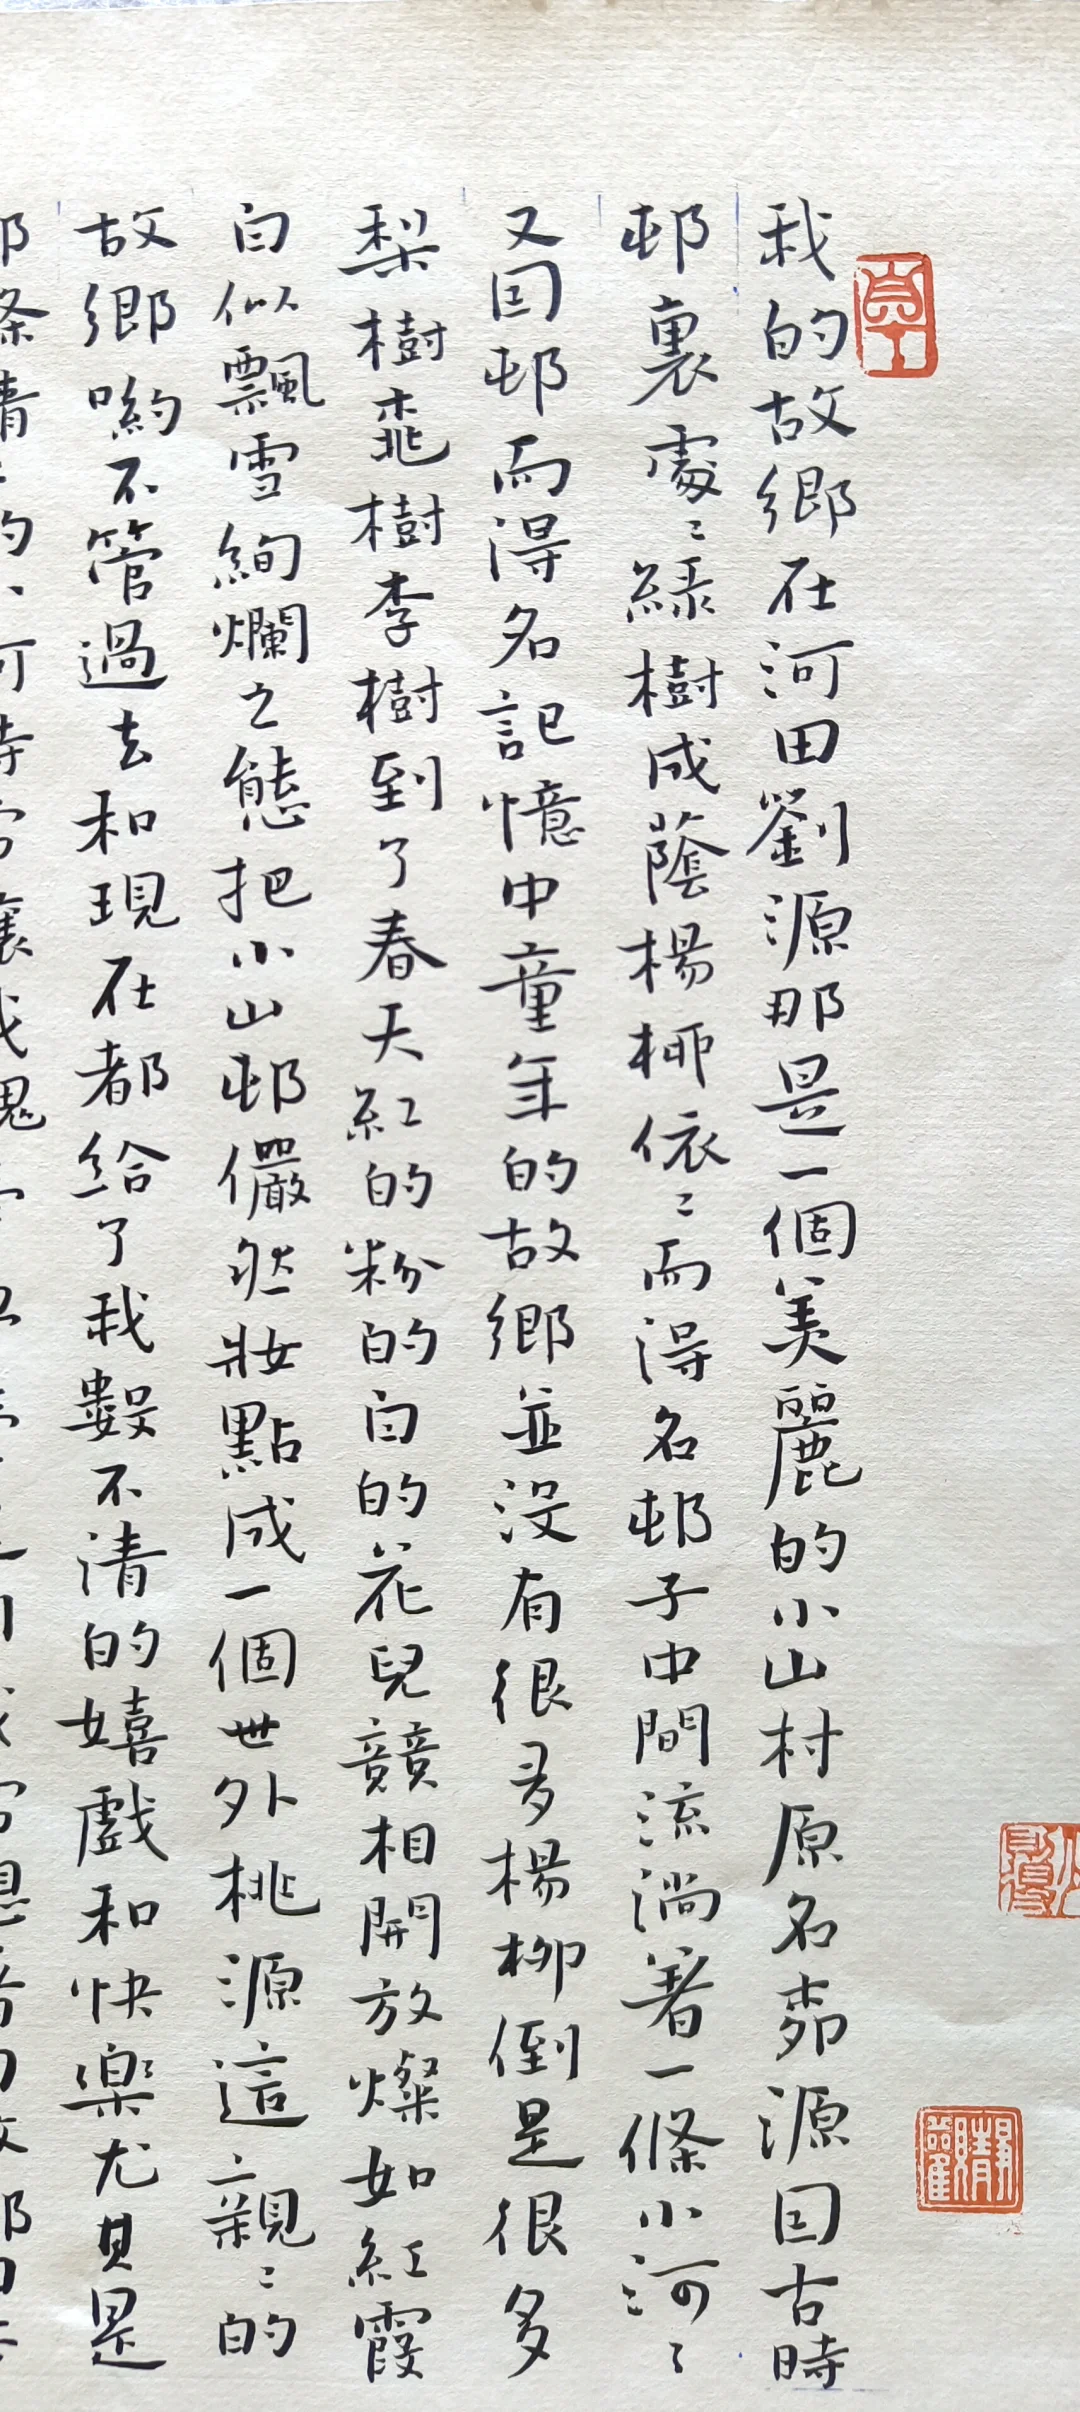 我的故鄉在河田劉源那是一個美麗的小山村原名茆源因古時
邨裏處〻綠樹成蔭楊柳依〻而得名邨子中間流淌著一條小河〻
又因邨而得名記憶中童年的故鄉並没有很多楊柳倒是很多
梨樹桃樹李樹到了春天紅的粉的白的花兒競相開放燦如紅霞
白似飄雪絢爛之態把小山邨儼然妝點成一個世外桃源這親〻的
故鄉喲不管過去和現在都給了我數不清的嬉戲和快樂尤其是
那條清〻的河